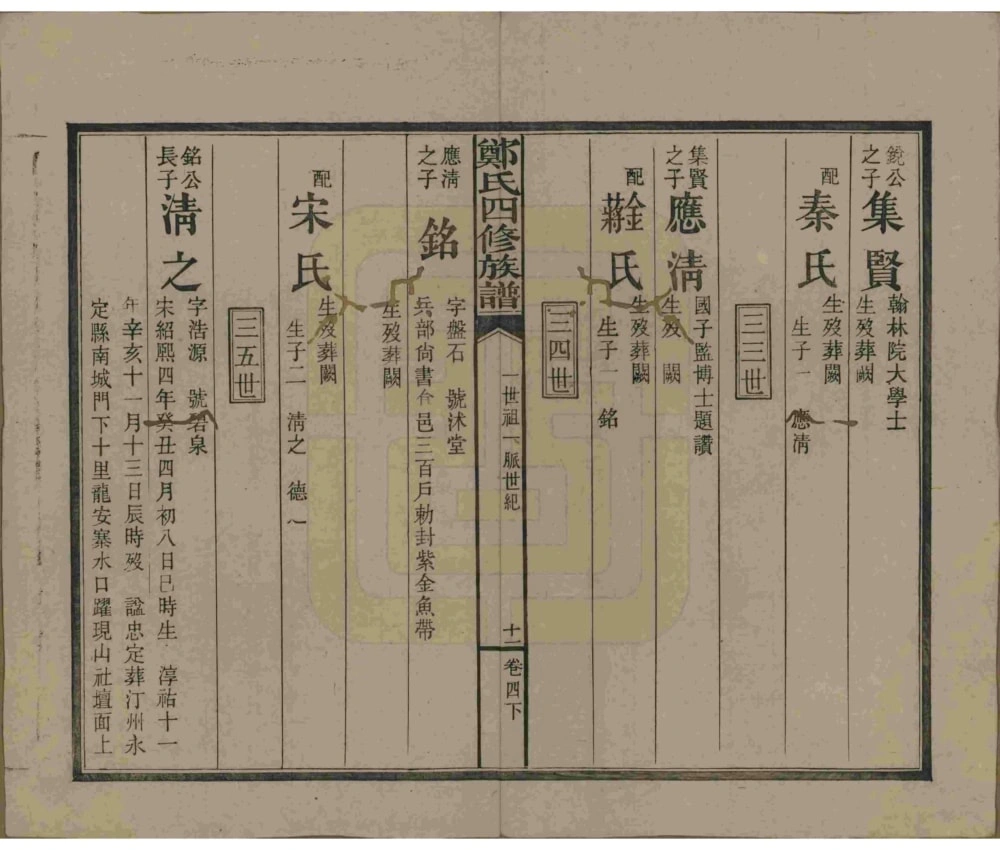 銳公之子
集賢
翰林院大學士
生歿葬闕
配
秦氏
生歿葬闕
生子一 應淸
三三世
集賢之子
應淸
國子監博士題讚
生歿 闕
配
金氏
蔣
生歿葬闕
生子一 銘
三四世
鄭氏四修族譜
一世祖一脈世紀
十一
卷四下
應淸之子
銘
字盤石 號沭堂
兵部尙書食邑三百戶勅封紫金魚帶
生歿葬闕
配
宋氏
生歿葬闕
生子二 淸之 德一
三五世
銘公長子
淸之
字浩源 號碧泉
宋紹熙四年癸丑四月初八日巳時生 淳祐十一
年辛亥十一月十三日辰時歿 諡忠定葬汀州永
定縣南城門下十里龍安寨水口躍現山社壇面上